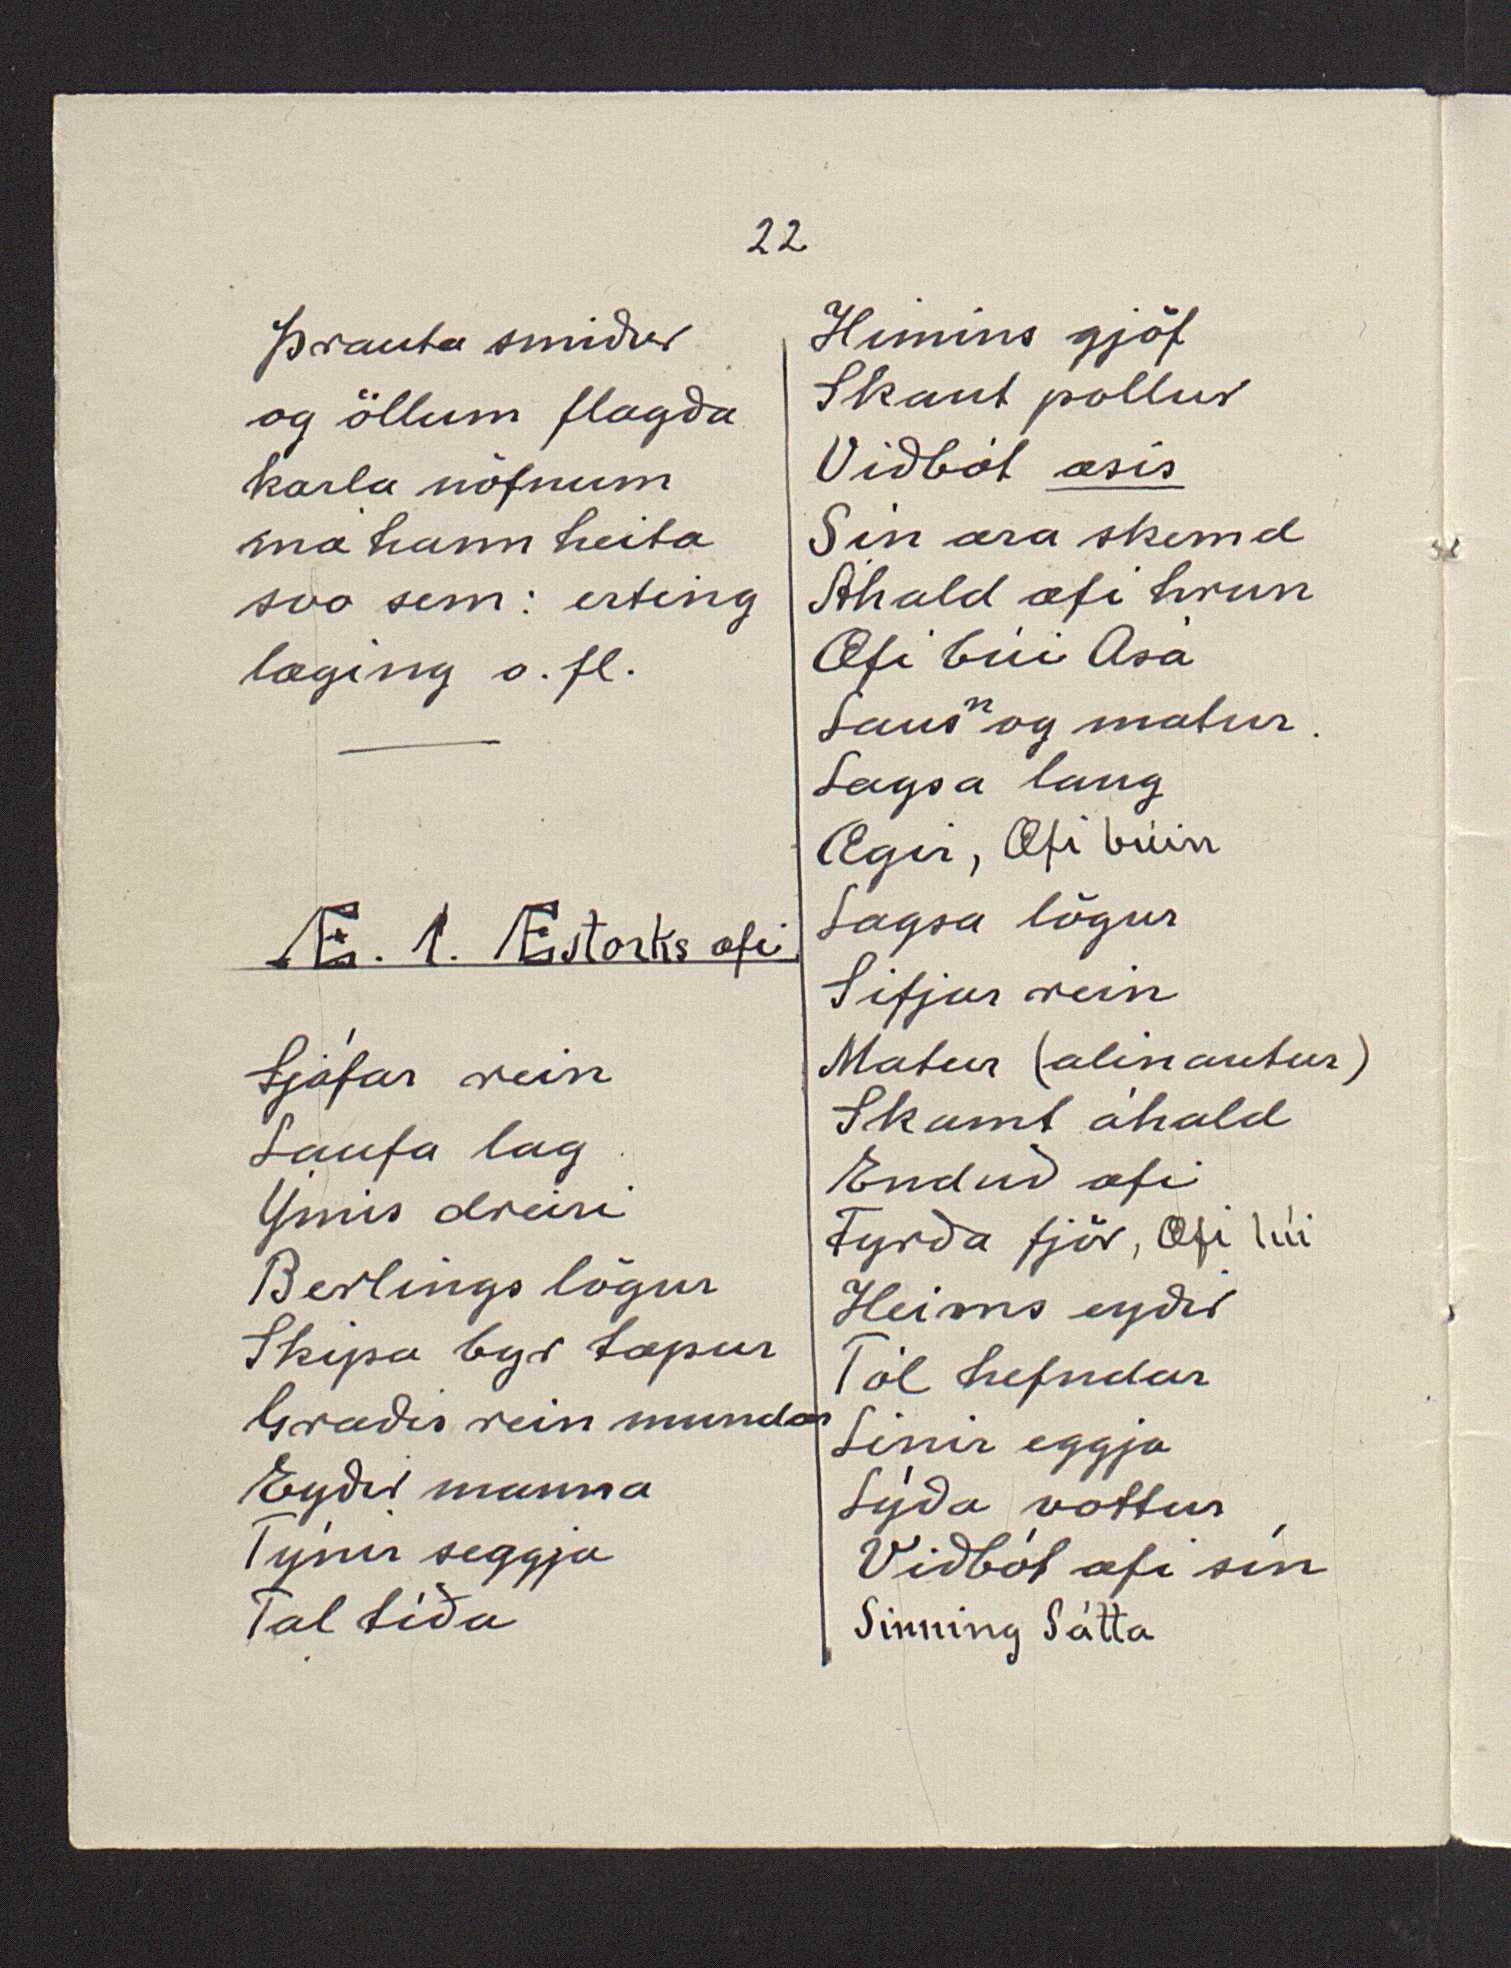 22
Þrauta smiður
og öllum flagda
karla nöfnum
má hann heita
svo sem: erting
læging o.fl.
Æ. 1. Æstorks æfi
Sjáfar rein
Laufa lag
Ýmis dreiri
Berlings lögur
Skipa byr tæpur
Græðis rein mundar
Eyðir manna
Týnir seggja
Tal tíða
Himins gjöf
Skaut pollur
Viðbót æsis
Sin æra skemd
Áhald æfi hrun
Æfi búi Asá
Lausn og matur.
Lagsa laug
Ægir, Æfi búin
Lagsa lögur
Sifjar rein
Matur (alinautur)
Skamt áhald
Enduð æfi
Fyrða fjör, Æfi lúi
Heims eyðir
Tól hefndar
Linir eggja
Lýða vottur
Viðbót æfi sín
Sinning Sátta